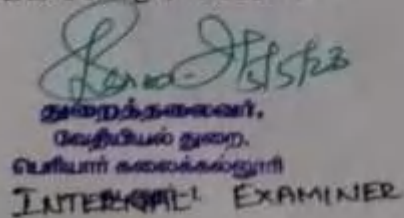 5/5/23
துறைத்தலைவர்,
வேதியியல் துறை,
பெரியார் கலைக்கல்லூரி
INTERNAL EXAMINER